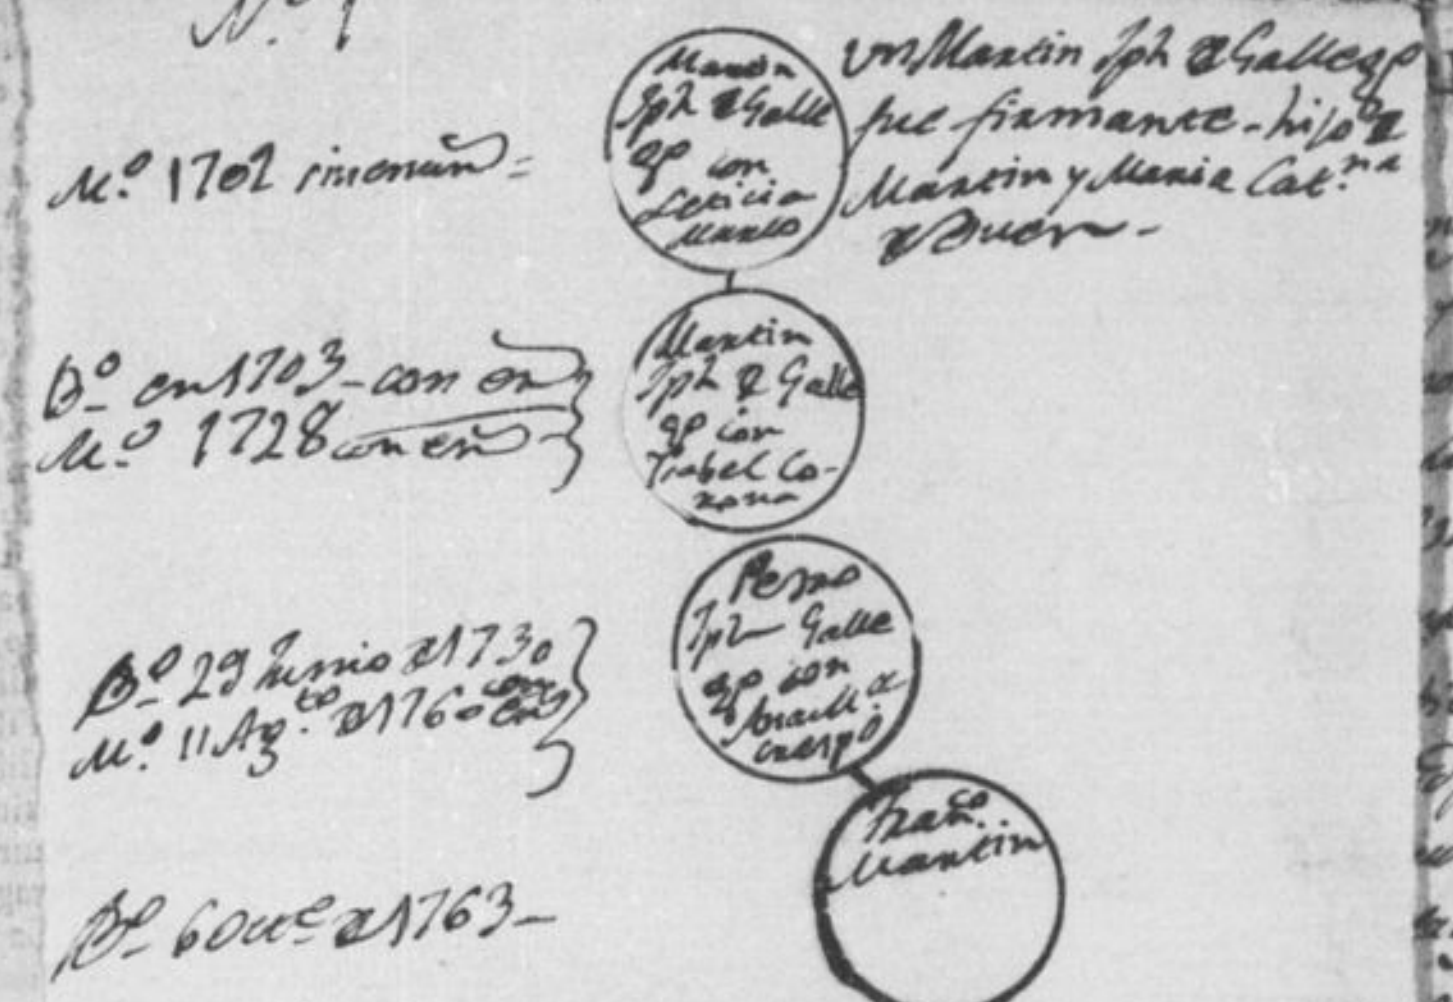 N.º 1
M.º 1702 sin enmᵈᵃ =
Martin
Jph de Galle
go con
Leticia
Marco
un Martin Jph de Gallego
fue firmante - hijo de
Martin y Maria Cat.ⁿᵃ
de
B.º en 1703 - con en
M.º 1728 con en
Martin
Jph de Galle
go con
Isabel Co-
rona
B.º 29 Junio de 1730
M.º 11 Ag.ᵗᵒ de 1760 con en
Pedro
Jph Galle
go con
de
cuerpo
Fran.ᶜᵒ
Martin
B.º 6 de 1763 -